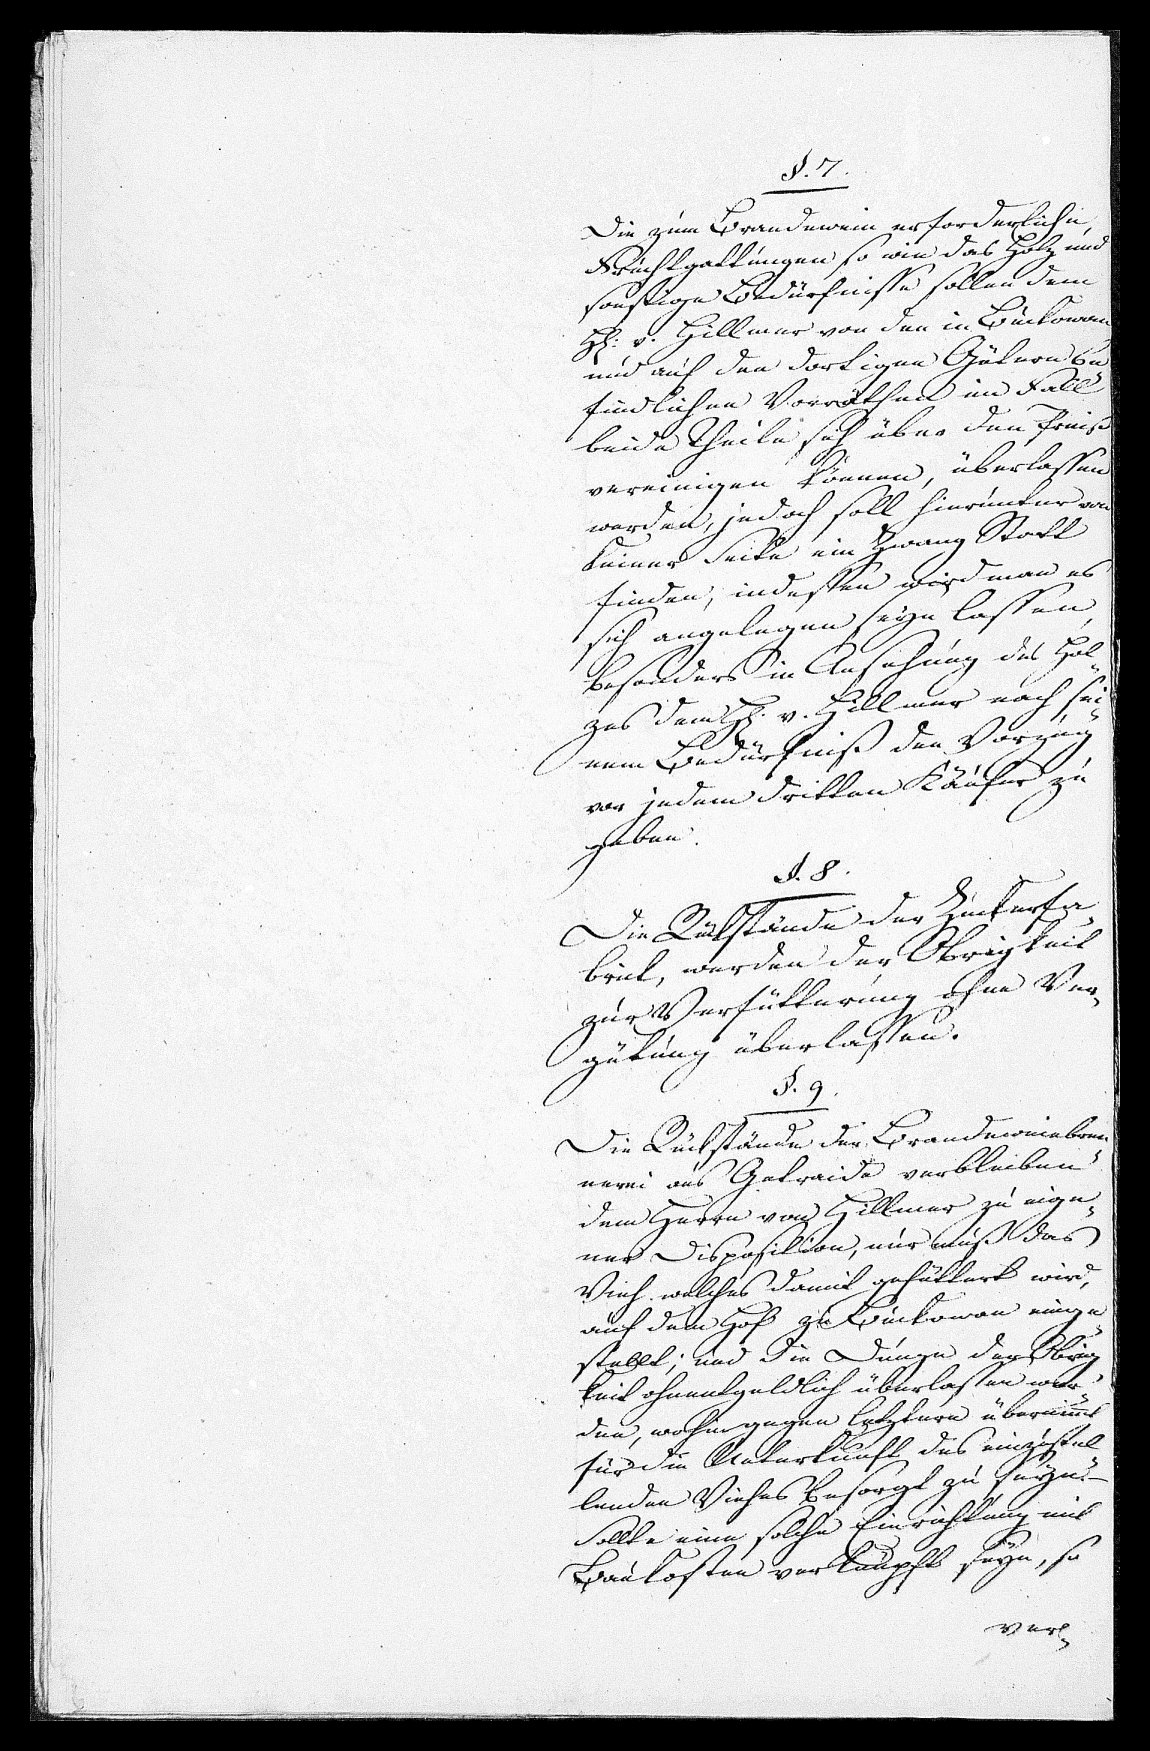 §. 7.
Die zum Brandewein erforderlichen
Fruchtgattungen so wie das Holz und
sonstige Bedürfnisse sollen dem
H: v. Hillmer von den in Buckowan
und auf den dortigen Gütern be„
findlichen Vorräthen im Fall
beide Theile sich über den Preiß
vereinigen können, überlassen
werden, jedoch soll hierunter von
keiner Seite ein Zwang Statt
finden, indessen wird man es
sich angelegen seyn lassen,
besonders in Ansehung des Hol„
zes dem H: v. Hillmer nach sei„
nem Bedürfniß den Vorzug
vor jedem dritten Käufer zu
geben.
§. 8.
Die Rükstände der Zuckerfa„
brik, werden der Obrigkeit
zur Verfütterung ohne Ver„
gütung überlassen.
§. 9.
Die Rückstände der Brandeweinbren„
nerei aus Getraide verbleiben
dem Herrn von Hillmer zu eige„
ner Disposition, nur muß das
Vieh welches damit gefüttert wird,
auf dem Hof zu Buckowan einge„
stellt, und die Dünge der Obrig„
keit ohnentgeldlich überlassen wer„
den, wohingegen letztere übernimmt
für die Unterkunft des einzustel„
lenden Viehes besorgt zu seyn. –
Sollte eine solche Einrichtung mit
Baukosten verknüpft seyn, so
ver„